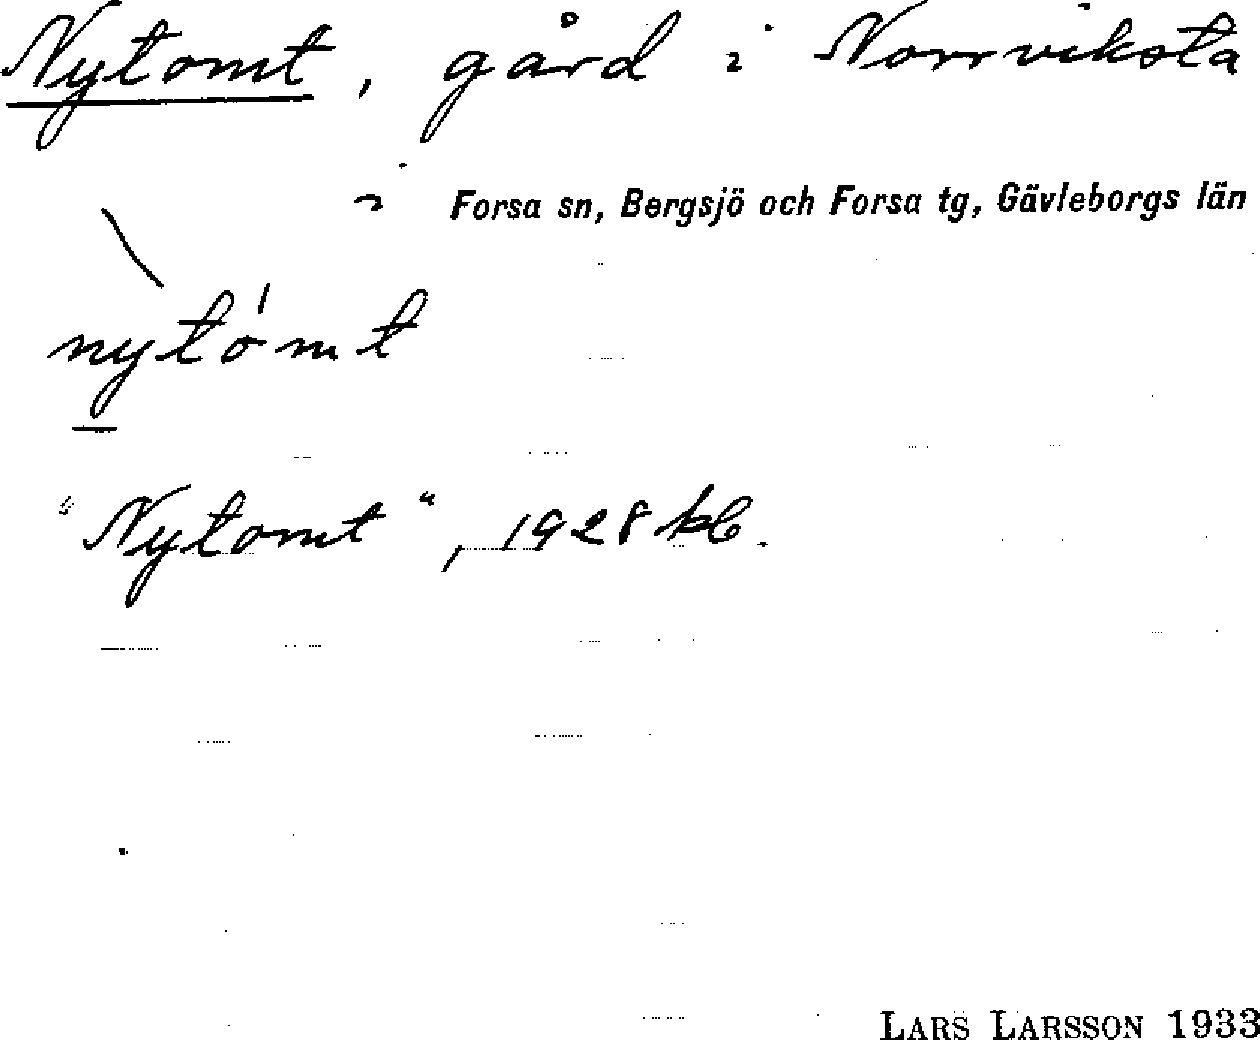 Nytomt, gård i Norrviksta
i Forsa sn, Bergsjö och Forsa tg, Gävleborgs län
nytómt
"Nytomt", 1928 kb.
LARS LARSSON 1933